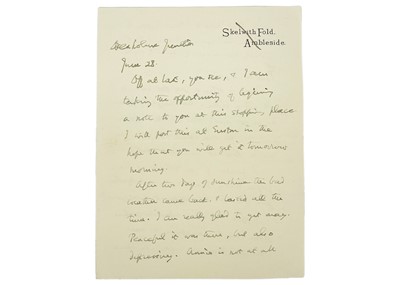 Skelwith Fold,
Ambleside.
Junction
June 28.
Off at last, you see, & I am
taking the opportunity of beginning
a note to you at this stopping place
I will post this at Euston in the
hope that you will get it tomorrow
morning.
After two days of sunshine the bad
weather came back. I loved all the
time. I am really glad to get away.
Peaceful it was there, but also
depressing. Annie is not at all